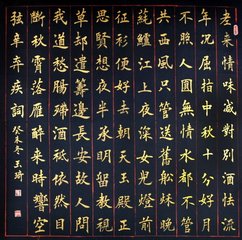 老來情味減對別酒怯流
年況屈指中秋十分好月
不照人圓無情水都不管
共西風只管送歸船秋晚
蒓鱸江上夜深兒女燈前
征衫便好去朝天玉殿正
思賢想夜半承明留教視
草卻遣籌邊長安故人問
我道愁腸殢酒衹依然目
斷秋霄落雁醉來時響空
弦辛弃疾詞
癸未冬玉琦